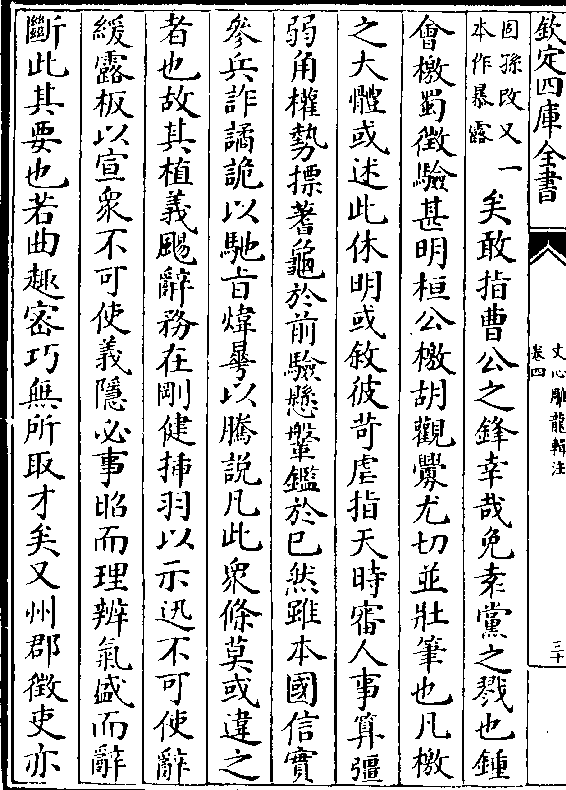 欽定四庫全書
文心雕龍輯注
卷四
三十
固孫改又一
本作暴露
矣敢指曹公之鋒幸哉免袁黨之戮也鍾
會檄蜀徵驗甚明桓公檄胡觀釁尤切並壯筆也凡檄
之大體或述此休明或敘彼苛虐指天時審人事算彊
弱角權勢摽蓍龜於前驗懸鞶鑑於已然雖本國信實
參兵詐譎詭以馳旨煒曄以騰説凡此衆條莫或違之
者也故其植義颺辭務在剛健揷羽以示迅不可使辭
緩露板以宣衆不可使義隱必事昭而理辨氣盛而辭
斷此其要也若曲趣密巧無所取才矣又州郡徵吏亦